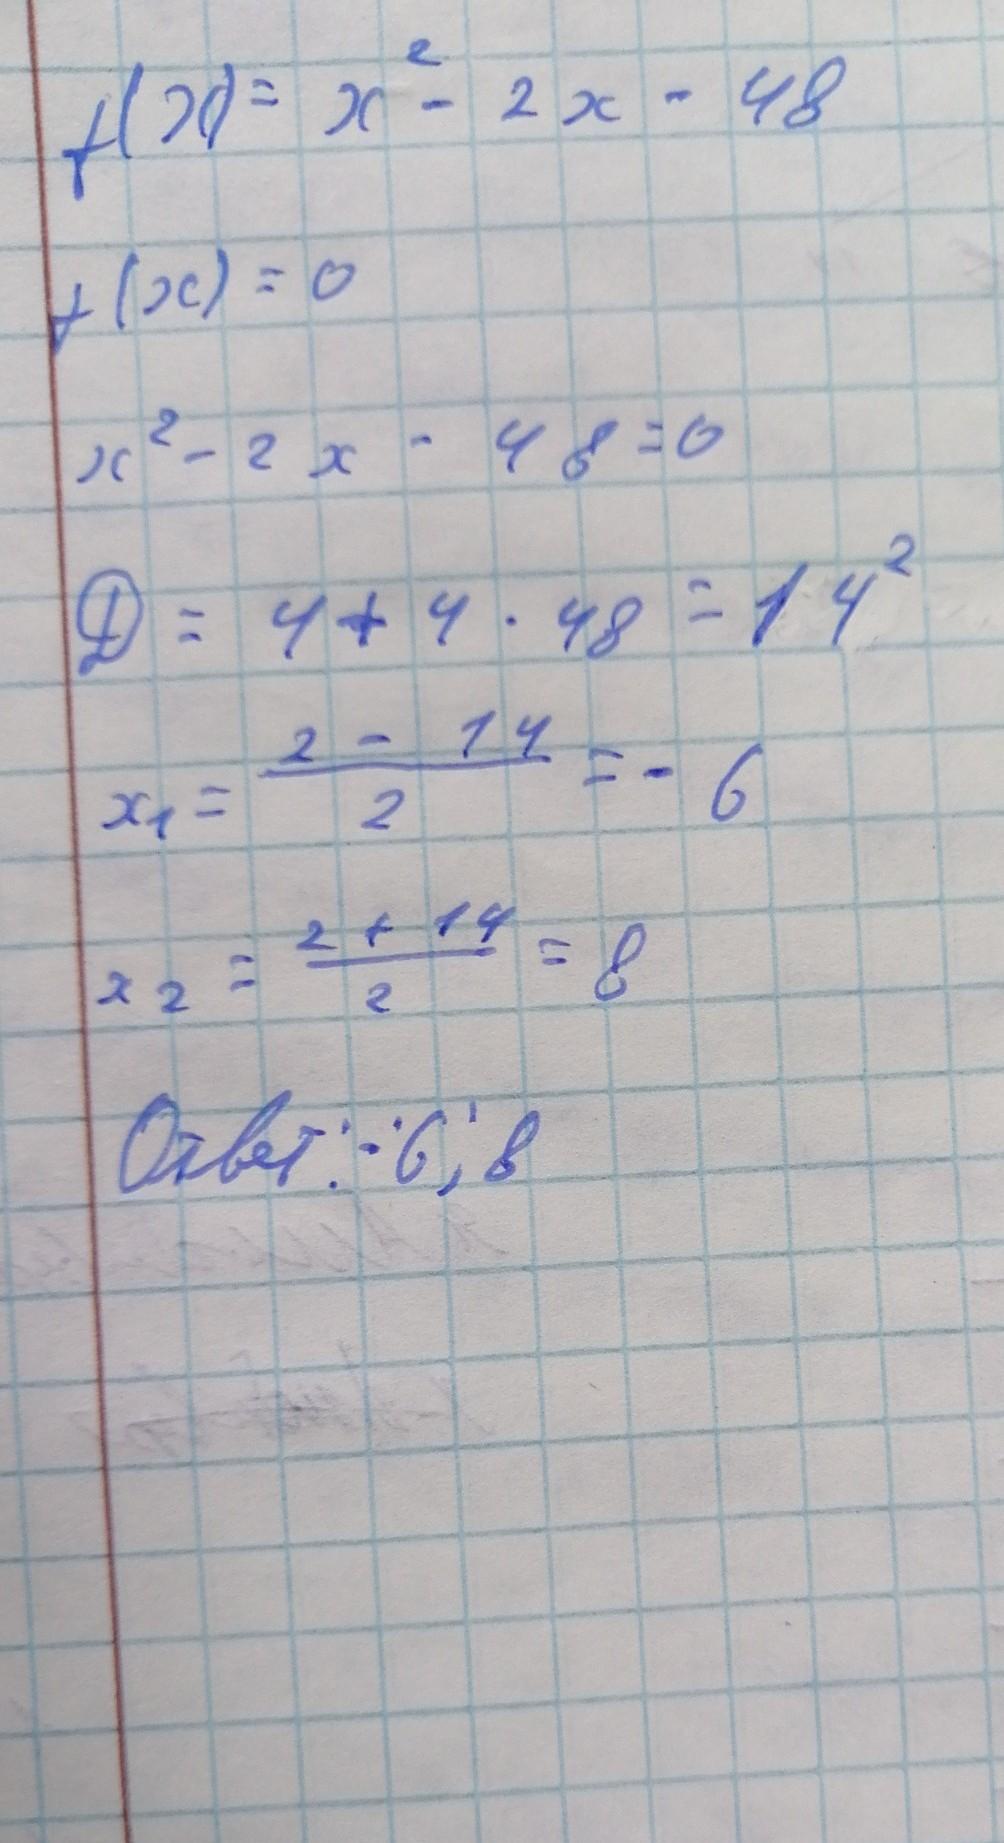 f(x) = x² - 2x - 48
f(x) = 0
x² - 2x - 48 = 0
D = 4 + 4 · 48 = 14²
x₁ = (2 - 14)/2 = - 6
x₂ = (2 + 14)/2 = 8
Ответ: -6; 8